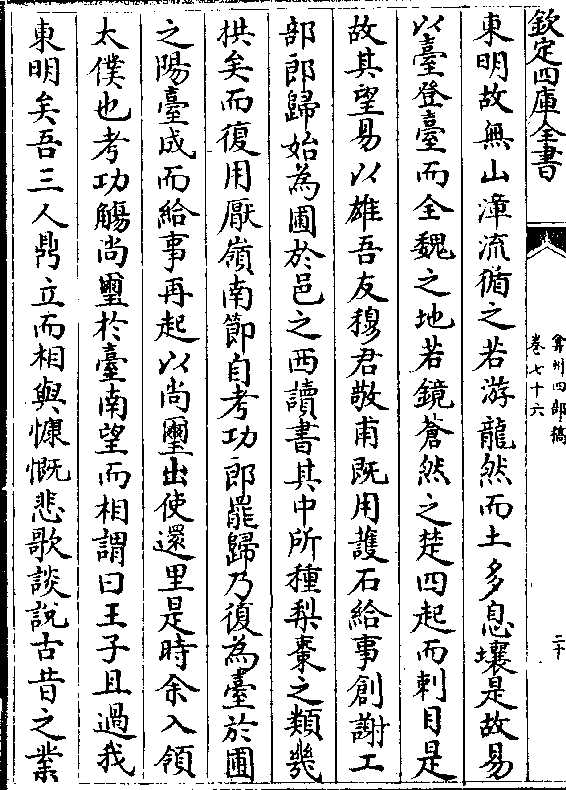 欽定四庫全書
弇州四部稿
卷七十六
二十
東明故無山漳流循之若游龍然而土多息壤是故易
以臺登臺而全魏之地若鏡蒼然之楚四起而刺目是
故其望易以雄吾友穆君敬甫既用護石給事創謝工
部郎歸始為圃於邑之西讀書其中所種梨棗之類幾
拱矣而復用厭嶺南節自考功郎罷歸乃復為臺於圃
之陽臺成而給事再起以尚璽出使還里是時余入領
太僕也考功觴尚璽於臺南望而相謂曰王子且過我
東明矣吾三人鼎立而相與慷慨悲歌談說古昔之業